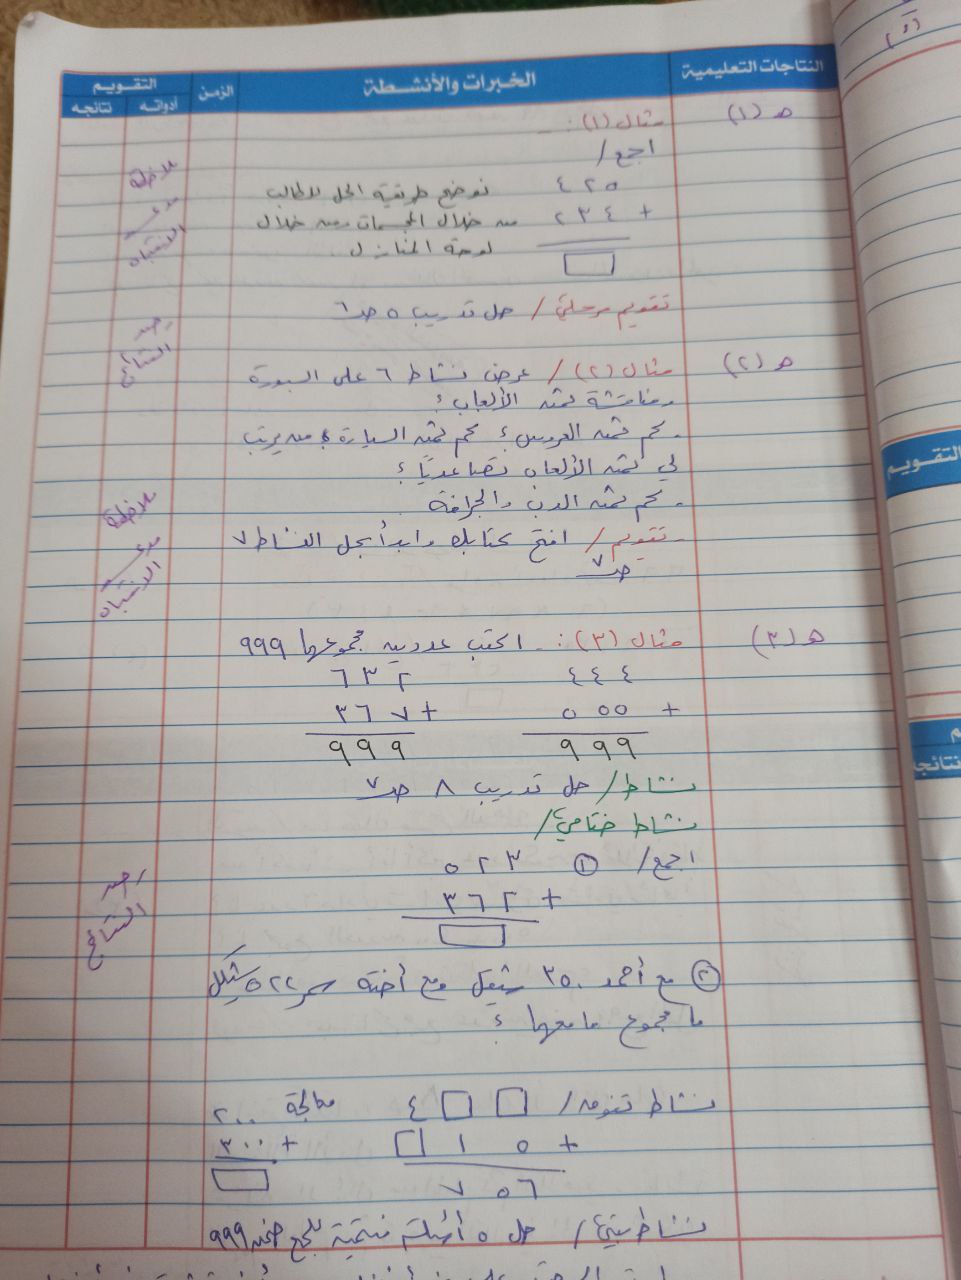 النتاجات التعليمية
الخبرات والأنشطة
الزمن
التقويم
أدواته
نتائجه
هـ (١)
مثال (١) :-
اجمع /
٤٢٥
نوضح طريقة الحل للطالب
+ ٢٣٤
من خلال المجسمات ومن خلال
لوحة المنازل
ملاحظة
مدى
الانتباه
تقويم مرحلي / حل تدريب ٥ صـ٦
رصد
النتائج
هـ (٢)
مثال (٢) / عرض نشاط ٦ على السبورة
ومناقشة ثمن الألعاب :
- كم ثمن العروس ؟ كم ثمن السيارة ؟ من يرتب
لي ثمن الألعاب تصاعدياً ؟
- كم ثمن الدب والجرافة
- تقويم / افتح كتابك وابدأ بحل النشاط ٧
صـ٧
ملاحظة
مدى
الانتباه
هـ (٣)
مثال (٣) :- اكتب عددين مجموعهما ٩٩٩
٤٤٤
٦٣٢
+ ٥٥٥
+ ٣٦٧
٩٩٩
٩٩٩
نشاط / حل تدريب ٨ صـ٧
نشاط ختامي /
اجمع / ① ٥٢٣
+ ٣٦٢
رصد
النتائج
② مع أحمد ٣٥٠ شيقل ومع أخته سمر ٥٢٢ شيكل
ما مجموع ما معهما ؟
نشاط تفوق / ٤
معالجة ٢٠٠
+ ١٥
+ ٣٠٠
٧٥٦
نشاط بيتي / حل ٥ أمثلة منتمية للجمع ضمن ٩٩٩
التقويم
نتائجه